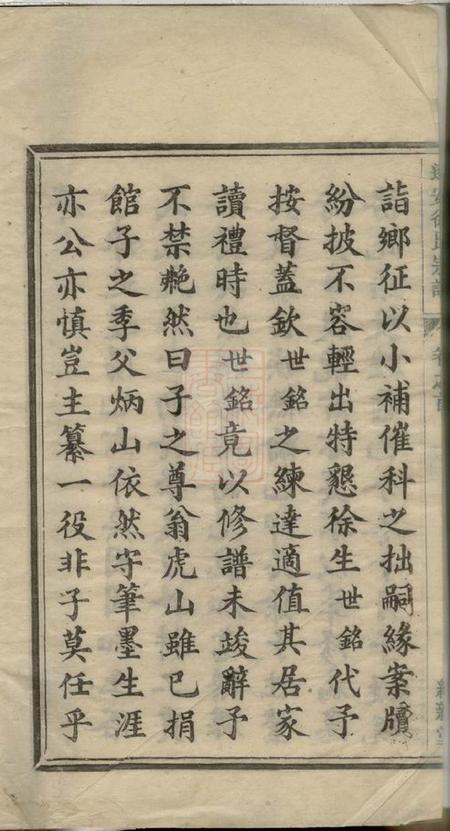 詣鄉征以小補催科之拙嗣緣案牘
紛披不容輕出特懇徐生世銘代予
按督蓋欽世銘之練達適值其居家
讀禮時也世銘竟以修譜未竣辭予
不禁艴然曰子之尊翁虎山雖已捐
館子之季父炳山依然守筆墨生涯
亦公亦慎豈主纂一役非子莫任乎